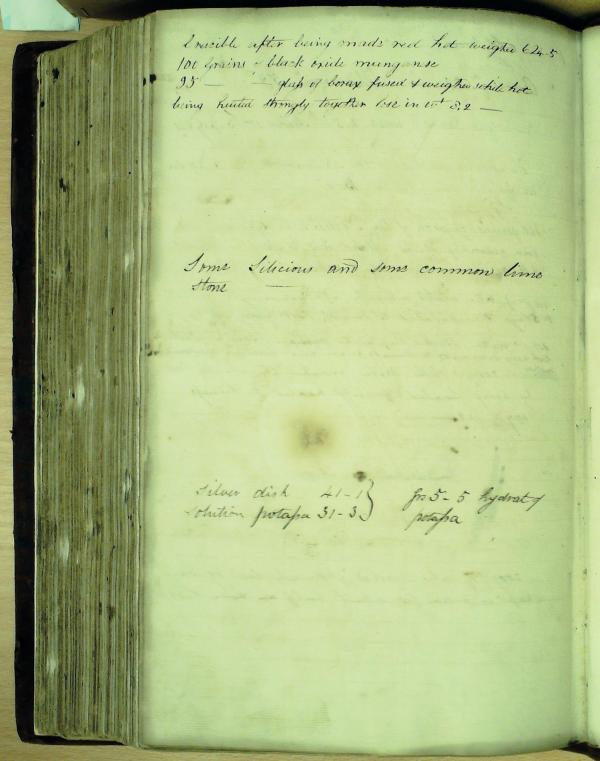 Crucible after being made red hot weighed 624.5
100 Grains - black oxide manganese
95 — glass of borax fused & weighed while hot
being heated strongly together lose in wt 3,2 —
Some Silicious and some common lime
stone
Silver dish 41-1 } grs 5-5 hydrat of
Solution potassa 31-3 } potassa